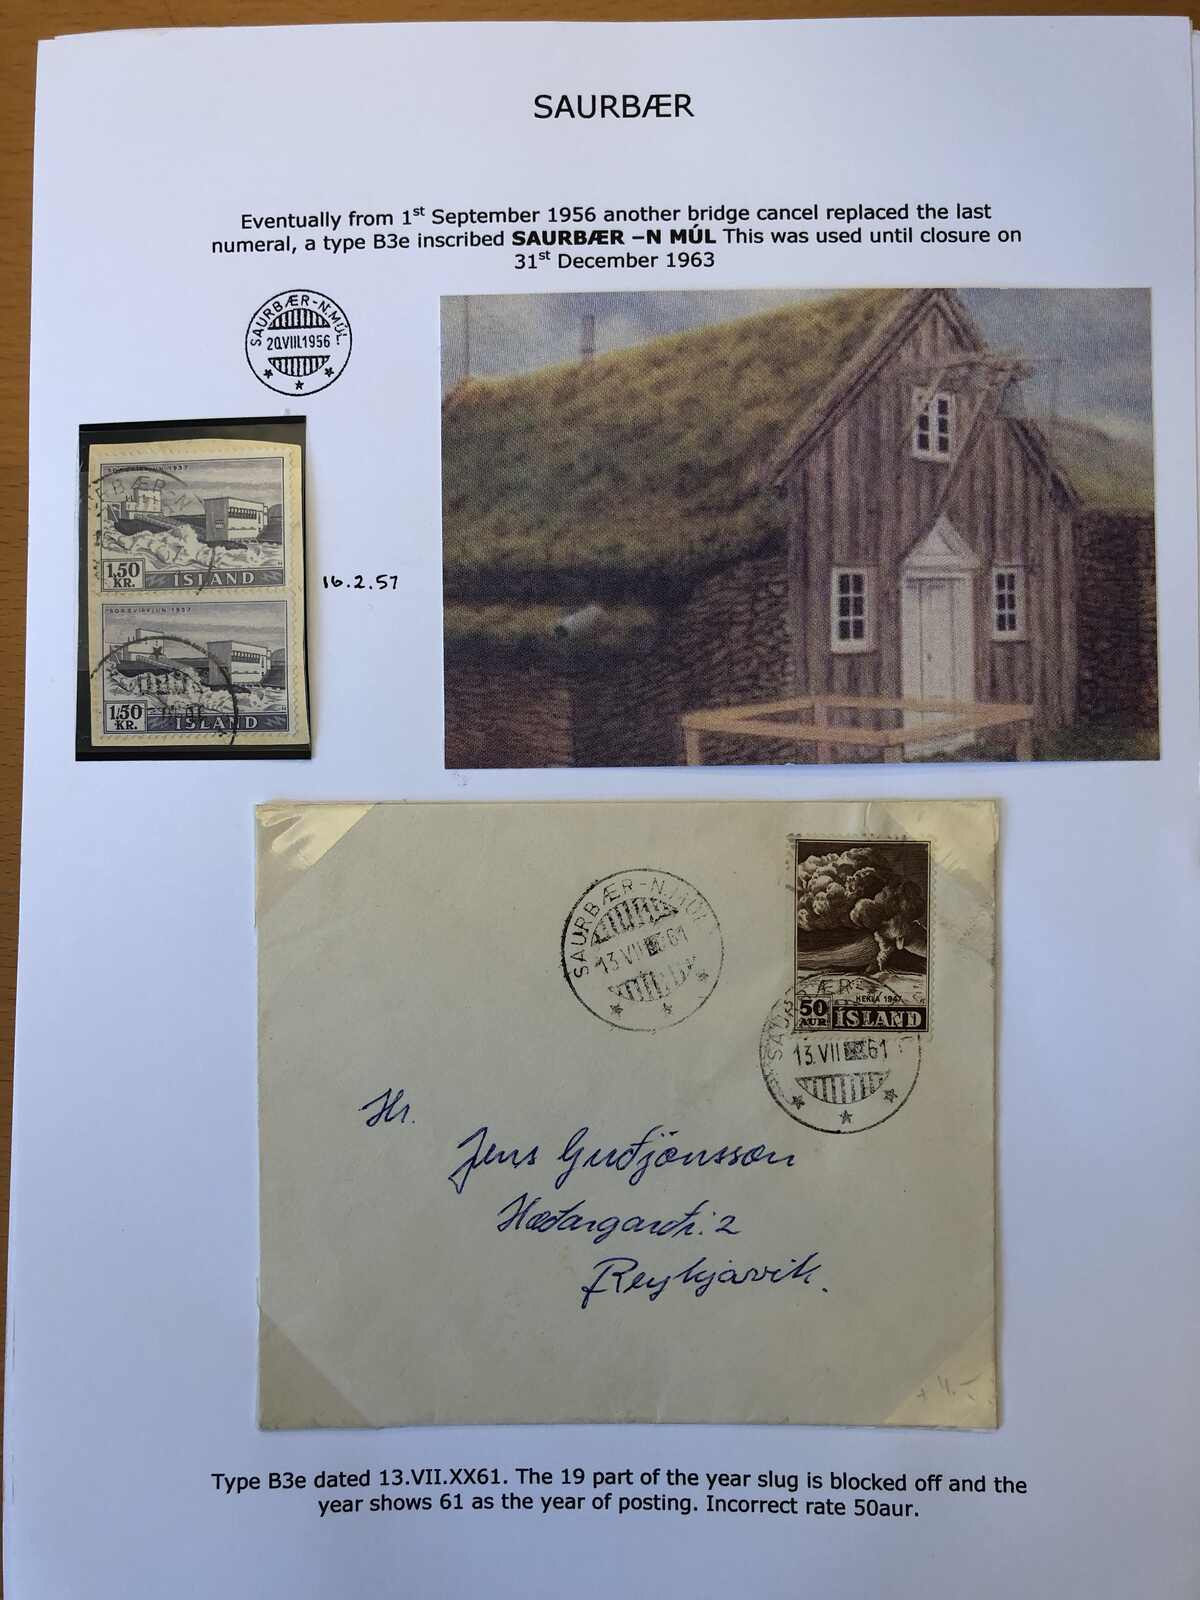 SAURBÆR
Eventually from 1st September 1956 another bridge cancel replaced the last
numeral, a type B3e inscribed SAURBÆR –N MÚL This was used until closure on
31st December 1963
SAURBÆR-N.MÚL.
20.VIII.1956
SOGSVIRKJUN 1937
BÆR-N
1,50
KR.
ÍSLAND
16.2.57
SOGSVIRKJUN 1937
1,50
KR.
ÍSLAND
SAURBÆR-N.MÚL
13.VII 61
HEKLA 1947
50
AUR
ÍSLAND
SAURBÆR-
13.VII 61
Hr.
Jens Guðjónsson
Hæðargarði 2
Reykjavík.
+ 4.-
Type B3e dated 13.VII.XX61. The 19 part of the year slug is blocked off and the
year shows 61 as the year of posting. Incorrect rate 50aur.